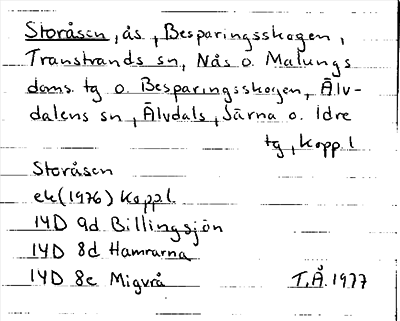 Storåsen, ås, Besparingsskogen,
Transtrands sn, Nås o. Malungs
doms. tg o. Besparingsskogen, Älv-
dalens sn, Älvdals, Särna o. Idre
tg, Kopp.l
Storåsen
ek (1976) Kopp.l.
14D 9d Billingsjön
14D 8d Hamrarna
14D 8e Migvrå
T.Å. 1977